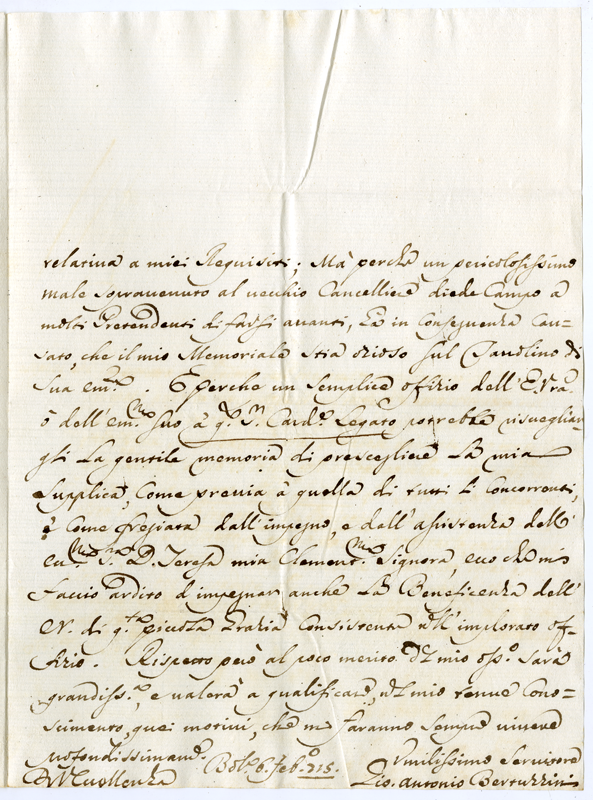 relatiua a miei Requisiti; Mà perche un pericolosissimo
male soprauenuto al uecchio Cancelliere diede Campo à
molti Pretendenti di farsi auanti, Hà in Conseguenza Cau=
sato, che il mio Memoriale stia ozioso sul Tauolino di
Sua em.ª . E perche un semplice offizio dell' E. Vra
ò dell' em.mo suo à q.to S.r Card.e Legato potrebbe risueglian
gli La gentile memoria di prescegliere La mia
Supplica, Come preuia à quella di tutti li Concorrenti,
e Come fregiata dall' impegno, e dall' assistenza dell'
D. Teresa mia Clement.ma Signora, ecco che mi
Faccio ardito d' impegnar anche La Beneficenza dell'
di q.ta picciola Grazia Consistente nell' implorato of=
fizio. Rispetto però al poco merito del mio oss.o sarà
grandiss.ª, e ualerà à qualificare, nel mio tenue Cono=
scimento, quei motiui, che mi faranno sempre uiuere
profondissimam.e
Bol.a 6. Feb.o 715. Vmilissimo Seruitore
Gio. Antonio Bertuzzini